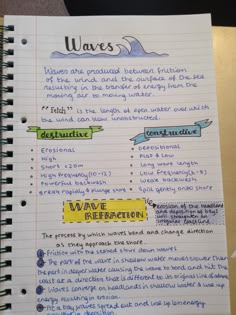 Waves
Waves are produced between friction
of the wind and the surface of the sea
resulting in the transfer of energy from the
moving air to moving water.
"Fetch" is the length of open water over which
the wind can blow unobstructed.
destructive
constructive
• Erosional
• High
• Short <20m
• High frequency (10-12)
• Powerful backwash
• Break rapidly & plunge shore
• Depositional
• Flat & Low
• Long wave length
• Low frequency (6-8)
• Weak backwash
• Spill gently onto shore
WAVE
REFRACTION
erosion of the headland
and deposition of bays
irregular coastline
The process by which waves bend and change direction
as they approach the shore.
Friction with the seabed slows down waves
The part of the wave in shallow water moves slower than
the part in deeper water causing the wave to bend and hit the
coast at a direction that is different to its original line of
Waves converge on headlands in shallow water & use up
energy resulting in erosion
In a bay waves spread out and use up less energy